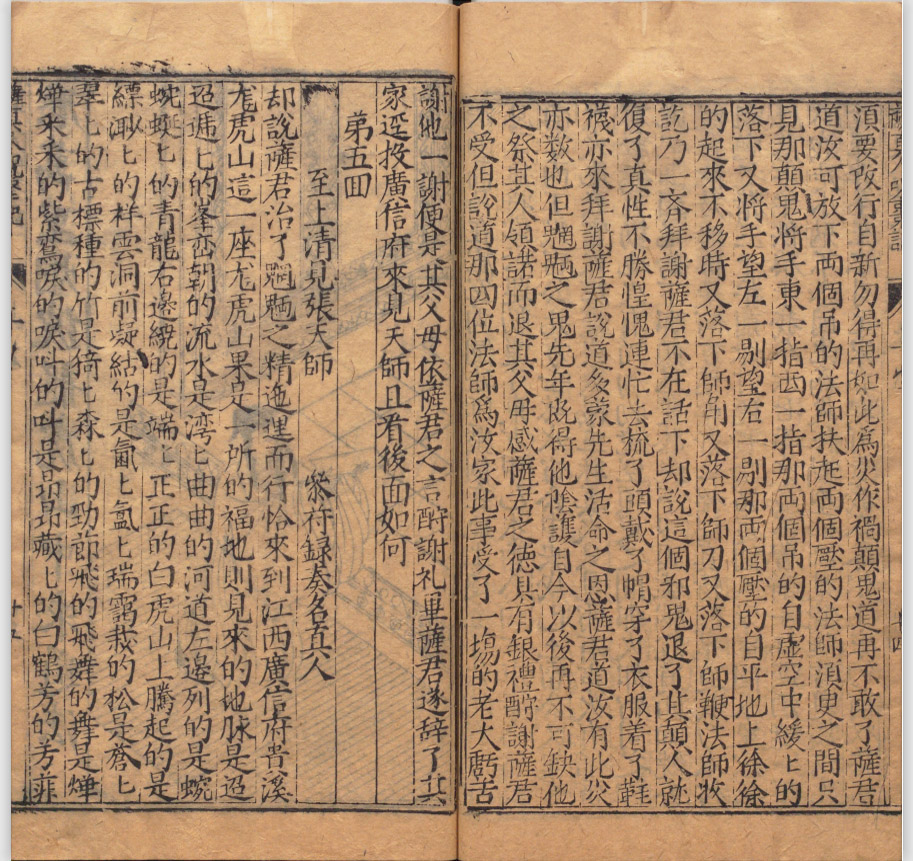 須要改行自新勿得再如此爲災作禍顛鬼道再不敢了薩君
道汝可放下両個吊的法師扶起両個壓的法師須臾之間只
見那顛鬼將手東一指西一指那両個吊的自虛空中緩〻的
落下又將手望左一剔望右一剔那両個壓的自平地上徐徐
的起來不移時又落下師角又落下師刀又落下師鞭法師收
訖乃一齐拜謝薩君不在話下却說這個邪鬼退了其顛人就
復了真性不勝惶愧連忙去梳了頭戴了帽穿了衣服着了鞋
襪亦來拜謝薩君說道多蒙先生活命之恩薩君道汝有此災
亦数也但魍魎之鬼先年既得他陰護自今以後再不可缺他
之祭其人領諾而退其父母感薩君之德具有銀禮酧謝薩君
不受但說道那四位法師爲汝家此事受了一塲的老大虧苦
謝他一謝便是其父母依薩君之言酧謝礼畢薩君遂辞了其
家逕投廣信府來見天師且看後面如何
第五囬
至上清見張天師　　祭符録奏名真人
却說薩君治了魍魎之精迤逦而行恰來到江西廣信府貴溪
龙虎山這一座龙虎山果是一所的福地則見來的地脉是迢
迢逓〻的峯峦朝的流水是湾〻曲曲的河道左邊列的是蜿
蜿蜒〻的青龍右邊繞的是端〻正正的白虎山上騰起的是
縹渺〻的祥雲洞前凝結的是氤〻氲〻瑞靄栽的松是蒼〻
翠〻的古標種的竹是猗〻森〻的勁節飛的飛舞的舞是燁
燁釆釆的紫鸞唳的唳呌的呌是昂昂藏〻的白鶴芳的芳菲